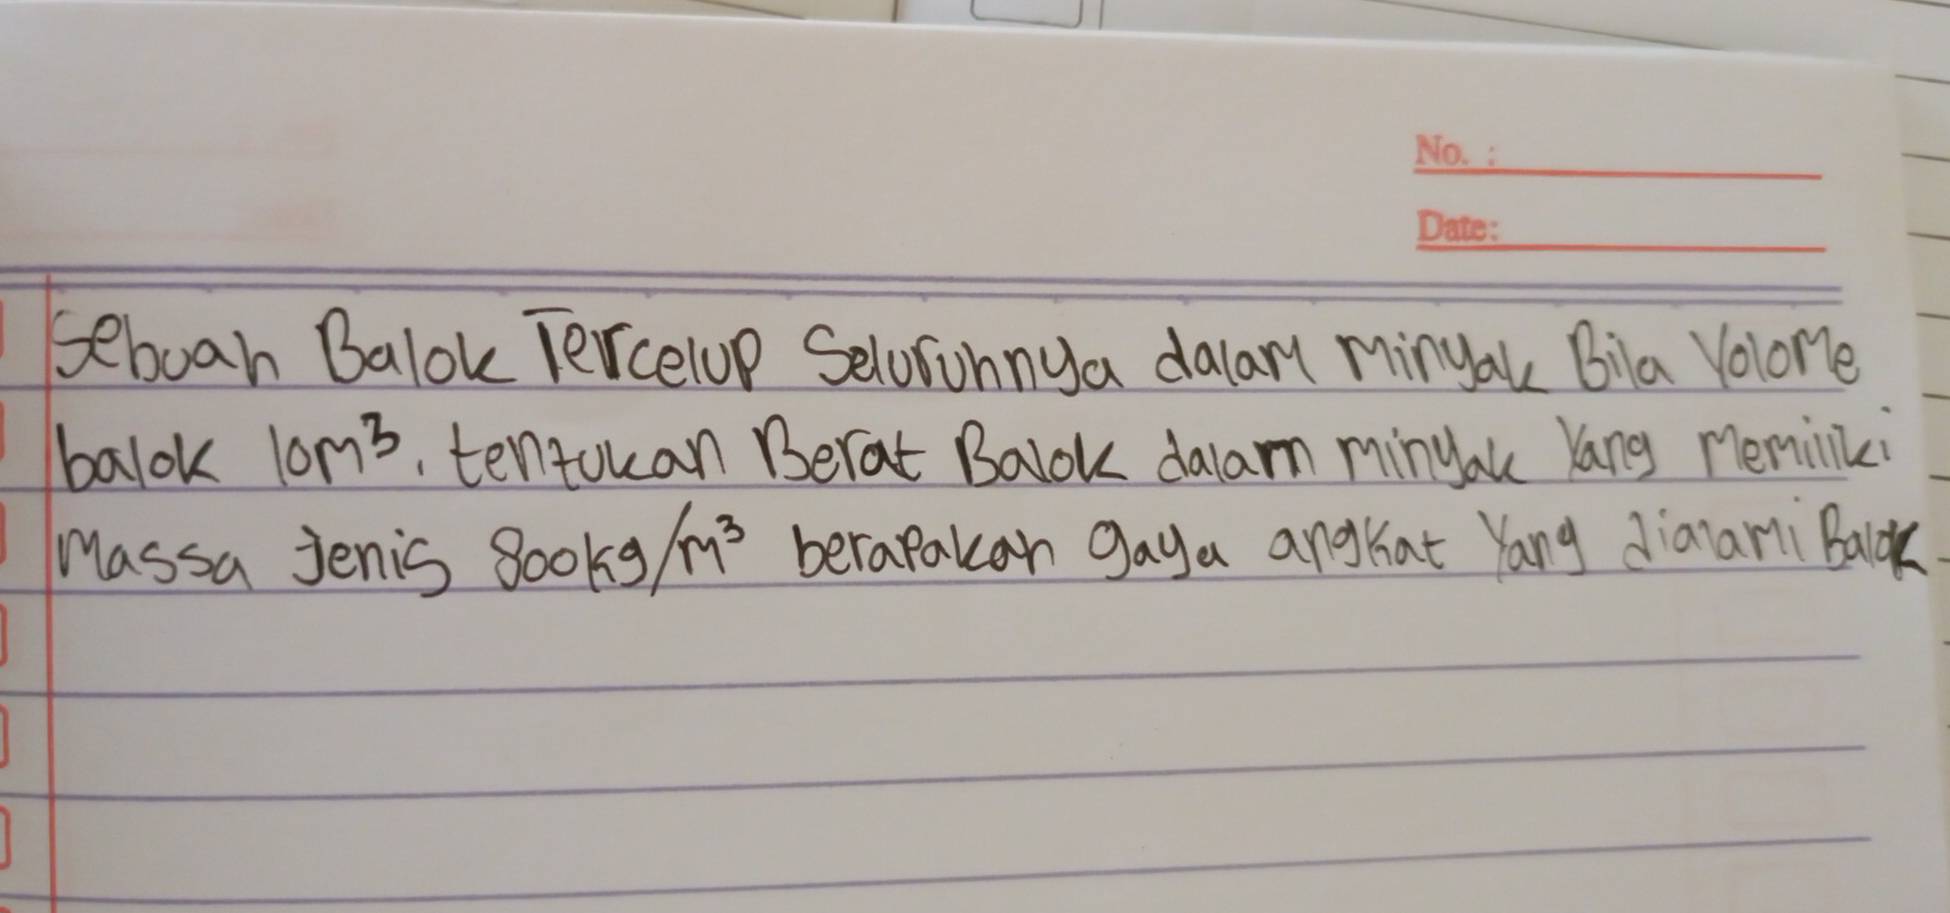 No. :
Date:
Sebuah Balok Tercelup Seluruhnya dalam minyak Bila Volome
balok 10m³. tentukan Berat Balok dalam minyak Yang Memiliki
Massa Jenis 800kg/m³ berapakah gaya angkat Yang dialami Balok